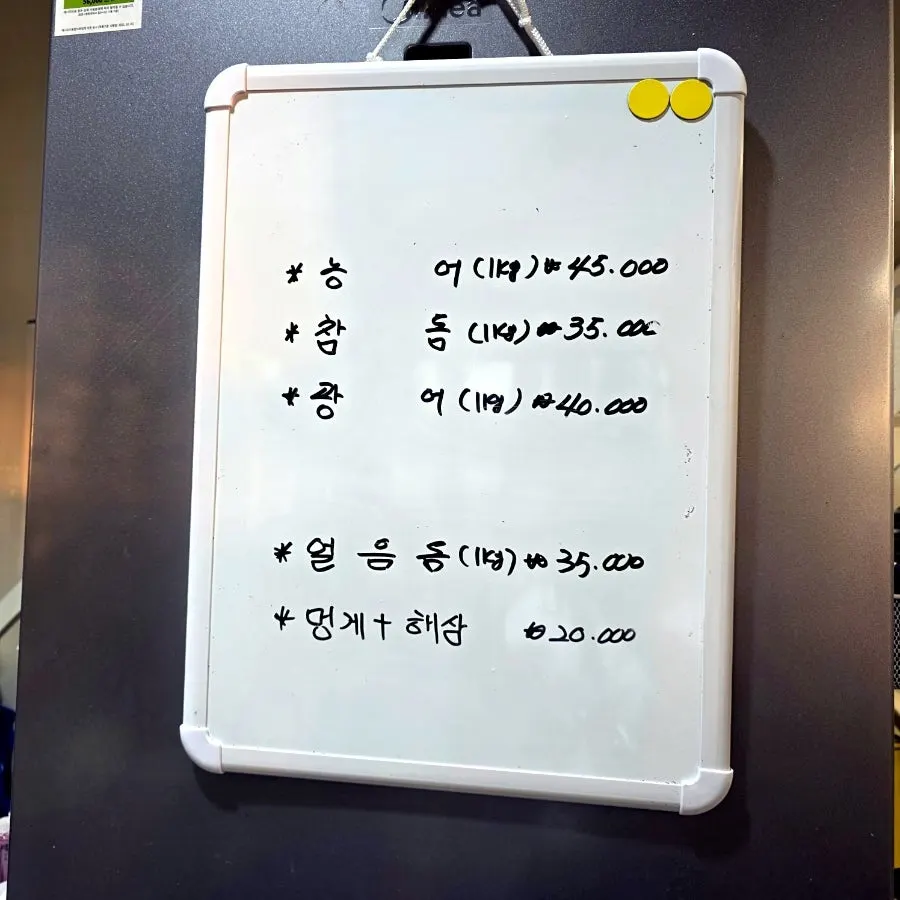 * 농 어 (1kg) ₩ 45.000
* 참 돔 (1kg) ₩ 35.000
* 광 어 (1kg) ₩ 40.000
* 얼 음 돔 (1kg) ₩ 35.000
* 멍게 + 해삼 ₩ 20.000